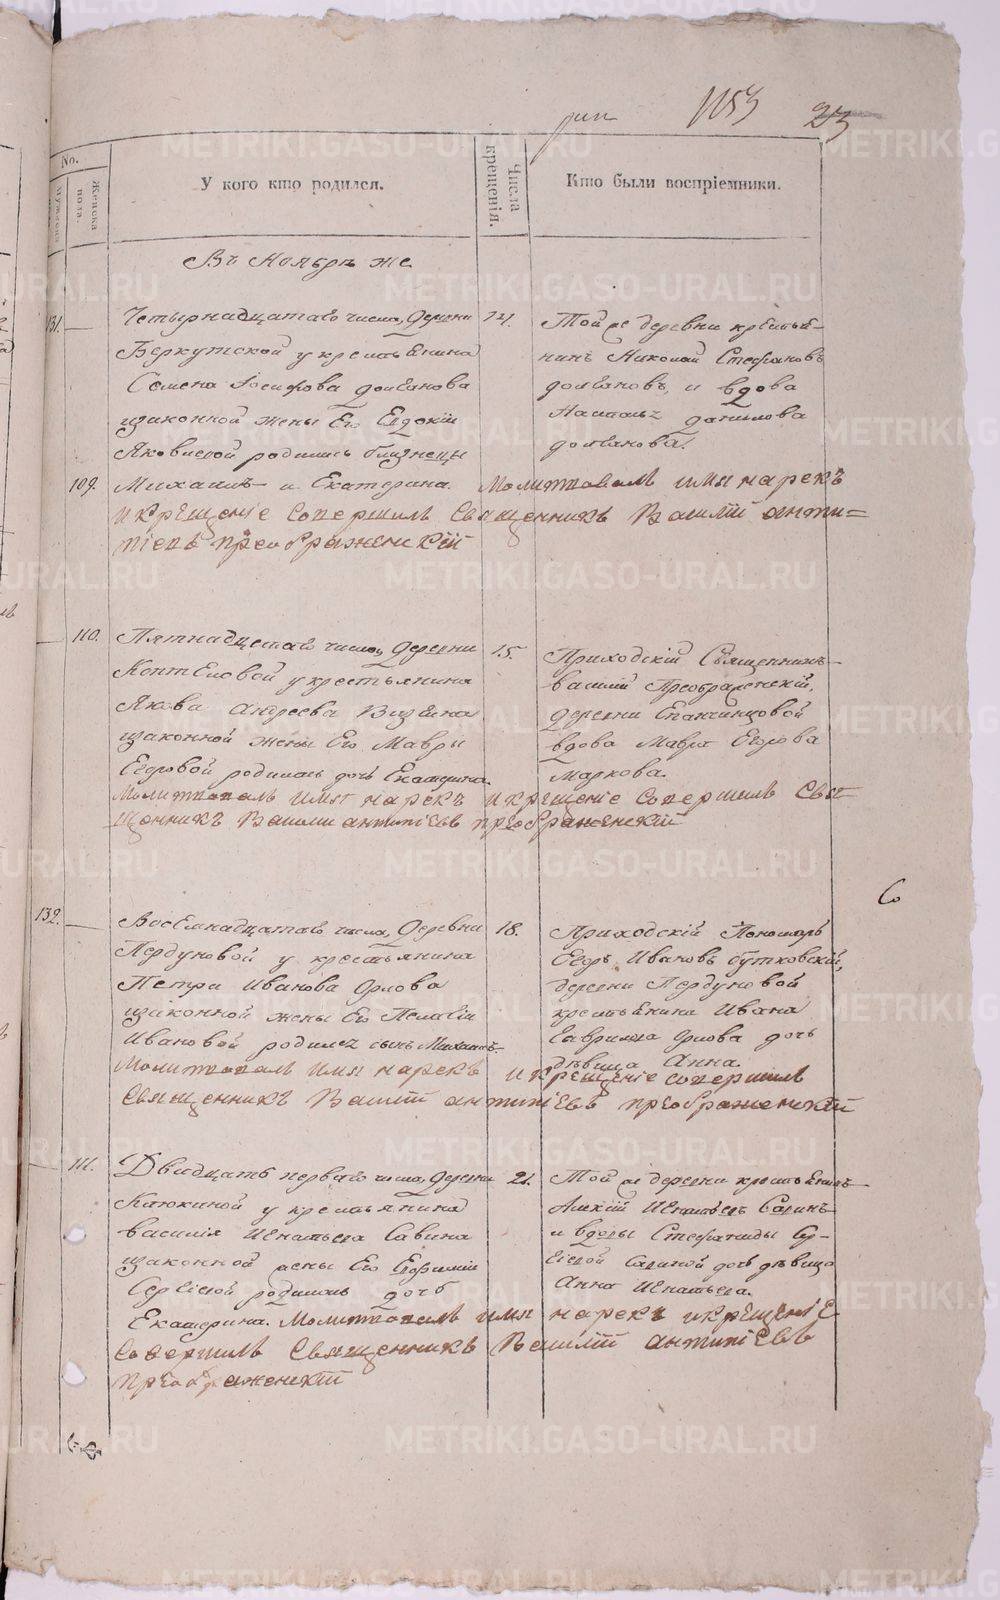 1153
23
No.
Мужеска
Женска пола.
У кого кто родился.
Числа крещенія.
Кто были воспріемники.
Въ Ноябрѣ же
131.
Четырнадцатаго числа, Деревни
Беркутской у крестьянина
Семена Іосифова Долганова
изаконной жены Его Евдокіи
Яковлевой родились близнецы
109. Михаилъ и Екатерина.
14.
Той же деревни крестья-
нинъ Николай Стефановъ
Долгановъ, и вдова
Наталья Данилова
Долганова.
Молитвовалъ имя нарекъ
и крещеніе совершилъ Священникъ Василій Анти=
піевъ Преображенскій
110. Пятнадцатаго числа, Деревни
Коптеловой у крестьянина
Якова Андреева
изаконной жены Его Мавры
Егоровой родилась дочь Екатерина.
15.
Приходскій Священникъ
Василій Преображенскій,
деревни Епанчинцовой
вдова Мавра Егорова
Маркова.
Молитвовалъ имя нарекъ и крещеніе совершилъ Свя
щенникъ Василій Антипіевъ Преображенскій
132.
Восемнадцатаго числа, Деревни
Пердуновой у крестьянина
Петра Иванова Орлова
изаконной жены Его Пелагіи
Ивановой родился сынъ Михаилъ
18.
Приходскій Пономарь
Егоръ Ивановъ Бутковскій,
деревни Пердуновой
крестьянина Ивана
Гаврилова Орлова дочь
дѣвица Анна.
Молитвовалъ имя нарекъ и крещеніе совершилъ
Священникъ Василій Антипіевъ Преображенскій
111. Двадцать перваго числа, Деревни
Катюкиной у крестьянина
Василія Игнатьева Савина
изаконной жены Его Евфиміи
Сергіевой родилась дочь
Екатерина.
21.
Той же деревни крестьянинъ
Игнатьевъ Савинъ
и вдовы Стефаниды Сер-
гіевой Савиной дочь дѣвица
Анна Игнатьева.
Молитвовалъ имя нарекъ и крещеніе
совершилъ Священникъ Василій Антипіевъ
Преображенскій
Со
METRIKI.GASO-URAL.RU